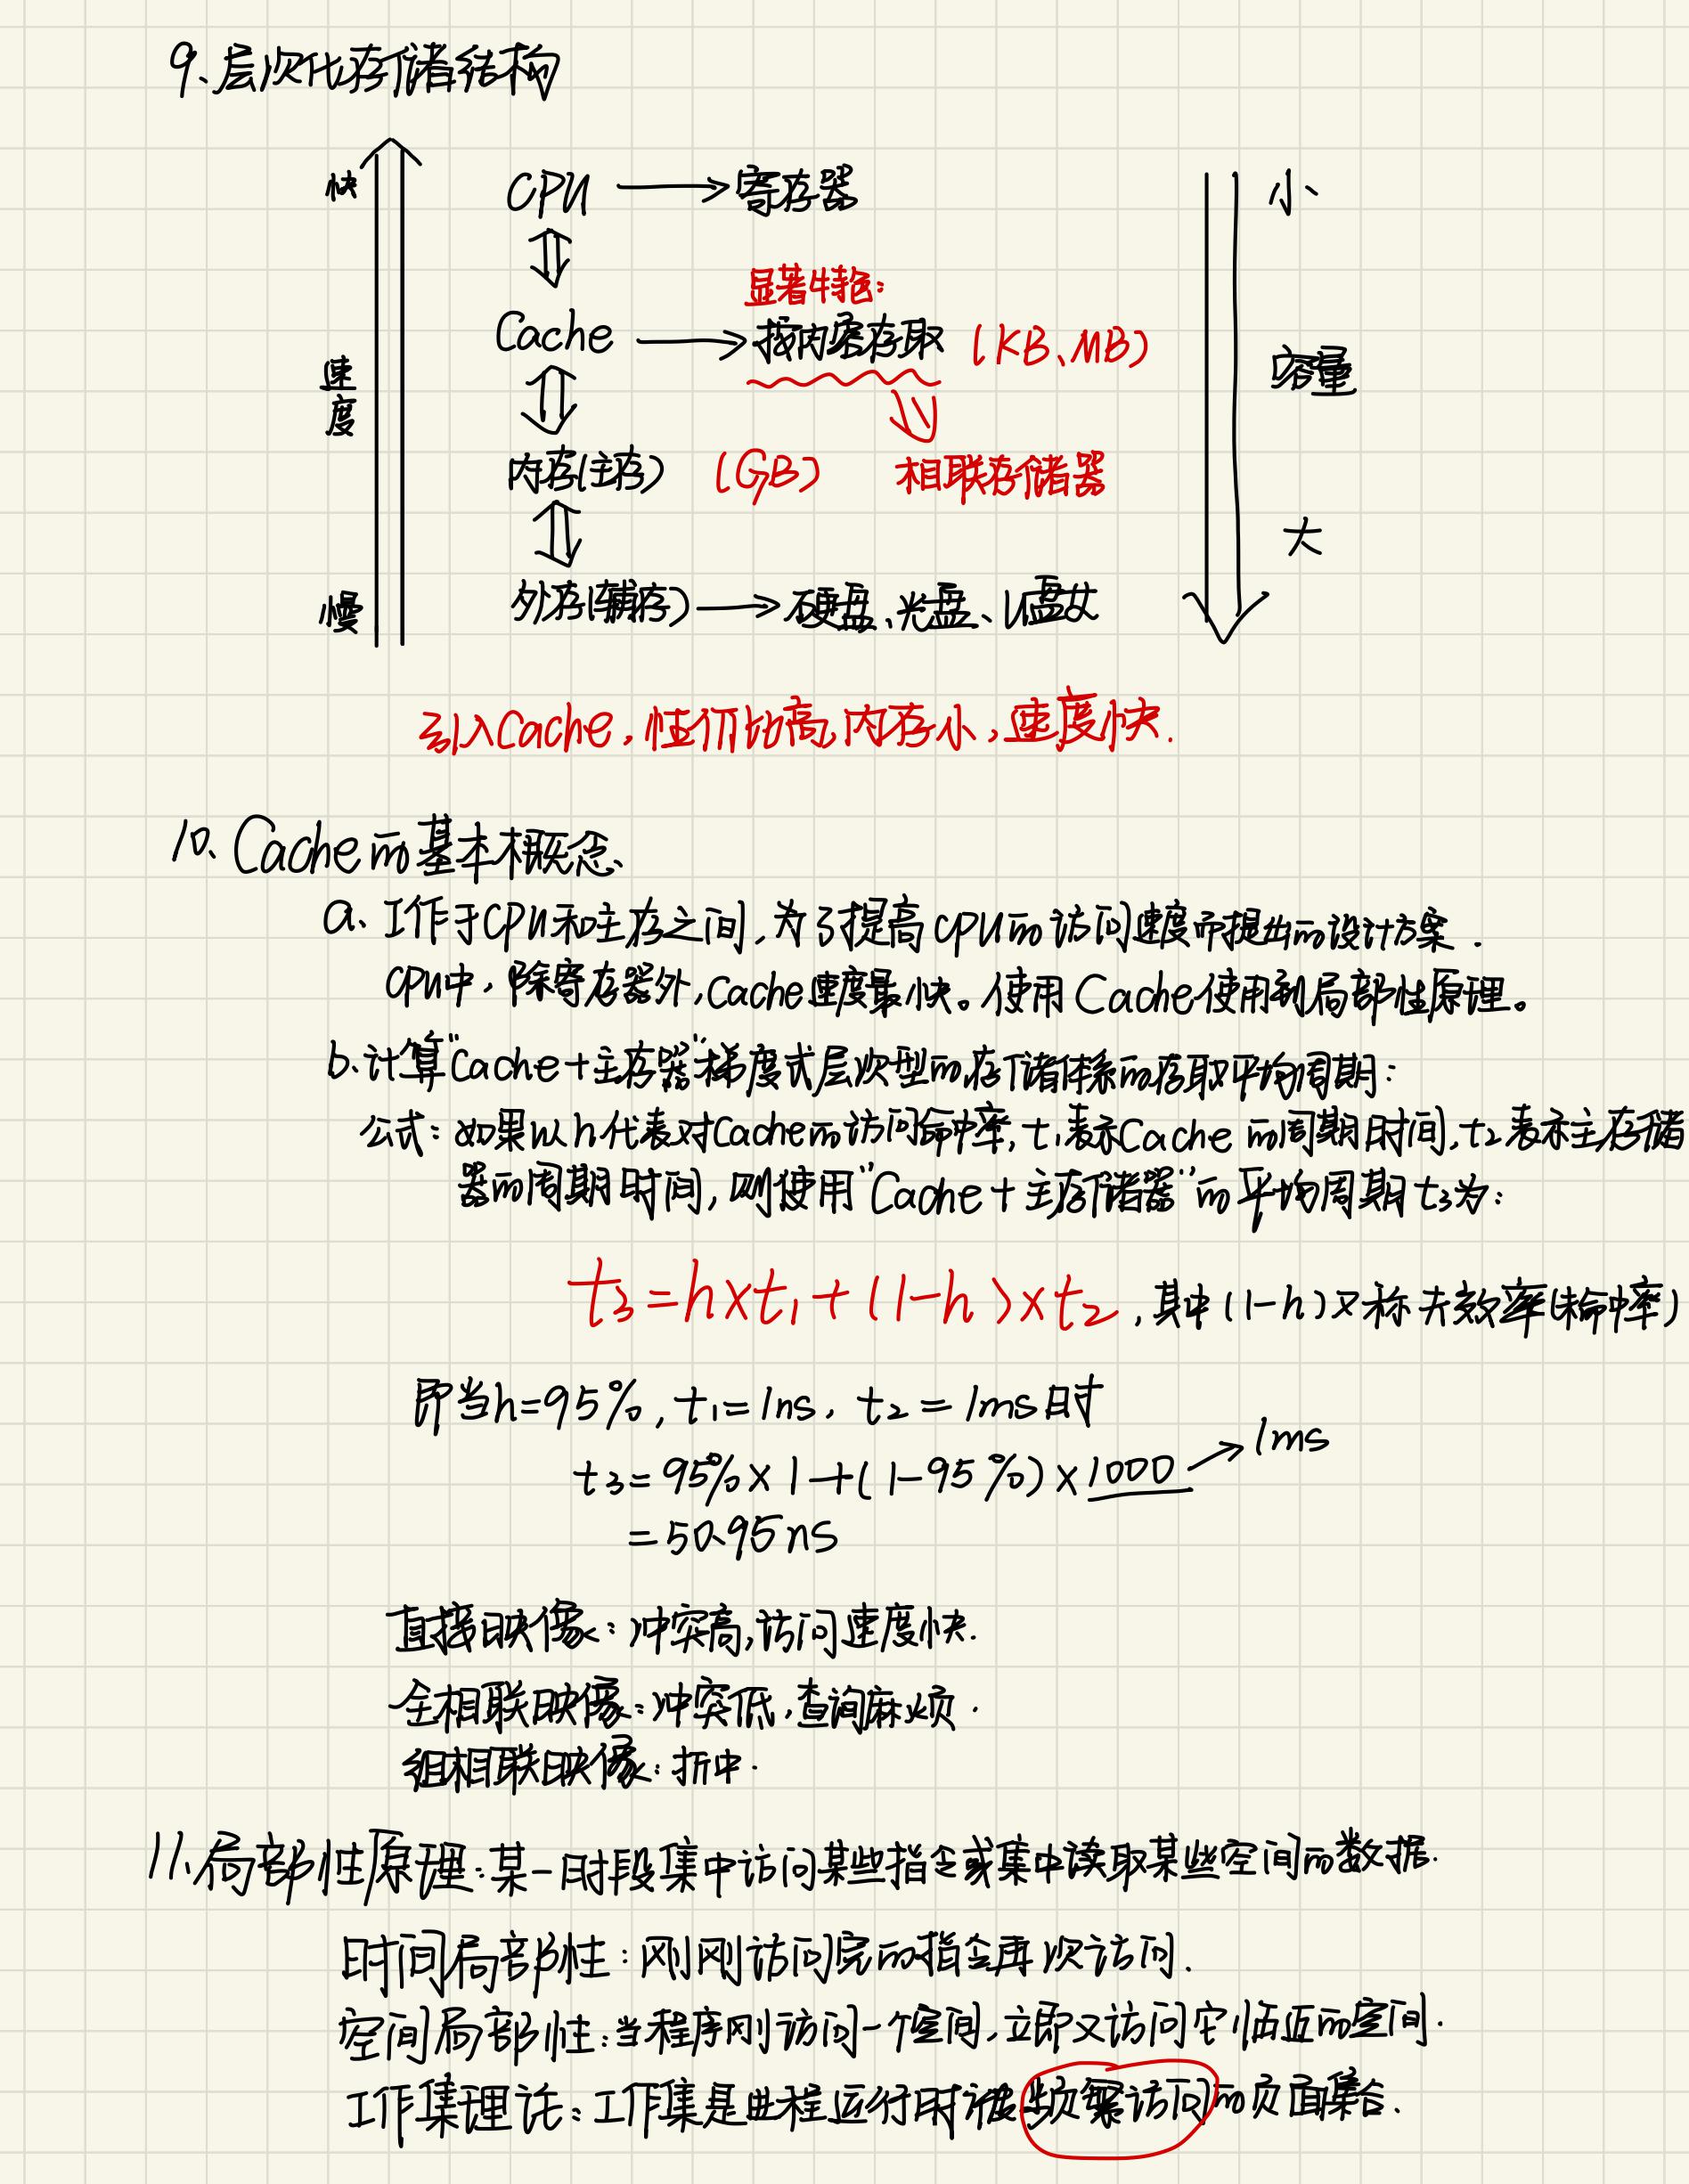 9、层次化存储结构
快 CPU → 寄存器 小
显著特色：
Cache → 按内容存取 (KB、MB)
速度 容量
内存(主存) (GB) 相联存储器
大
慢 外存(辅存) → 硬盘、光盘、U盘等
引入Cache，性价比高，内存小，速度快.
10、Cache的基本概念、
a、工作于CPU和主存之间，为了提高CPU的访问速度而提出的设计方案.
CPU中，除寄存器外，Cache速度最快。使用Cache使用到局部性原理。
b.计算"Cache+主存器"梯度式层次型的存储体系的存取平均周期：
公式：如果以h代表对Cache的访问命中率，t₁表示Cache的周期时间，t₂表示主存储
器的周期时间，则使用"Cache+主存储器"的平均周期t₃为：
t₃=h×t₁+(1-h)×t₂，其中(1-h)又称失效率(未命中率)
即当h=95%，t₁=1ns，t₂=1ms时
t₃=95%×1+(1-95%)×1000 → 1ms
=50.95ns
直接映像：冲突高，访问速度快.
全相联映像：冲突低，查询麻烦.
组相联映像：折中.
11、局部性原理：某一时段集中访问某些指令或集中读取某些空间的数据.
时间局部性：刚刚访问完的指令再次访问.
空间局部性：当程序刚访问一个空间，立即又访问它临近的空间.
工作集理论：工作集是进程运行时被频繁访问的页面集合.